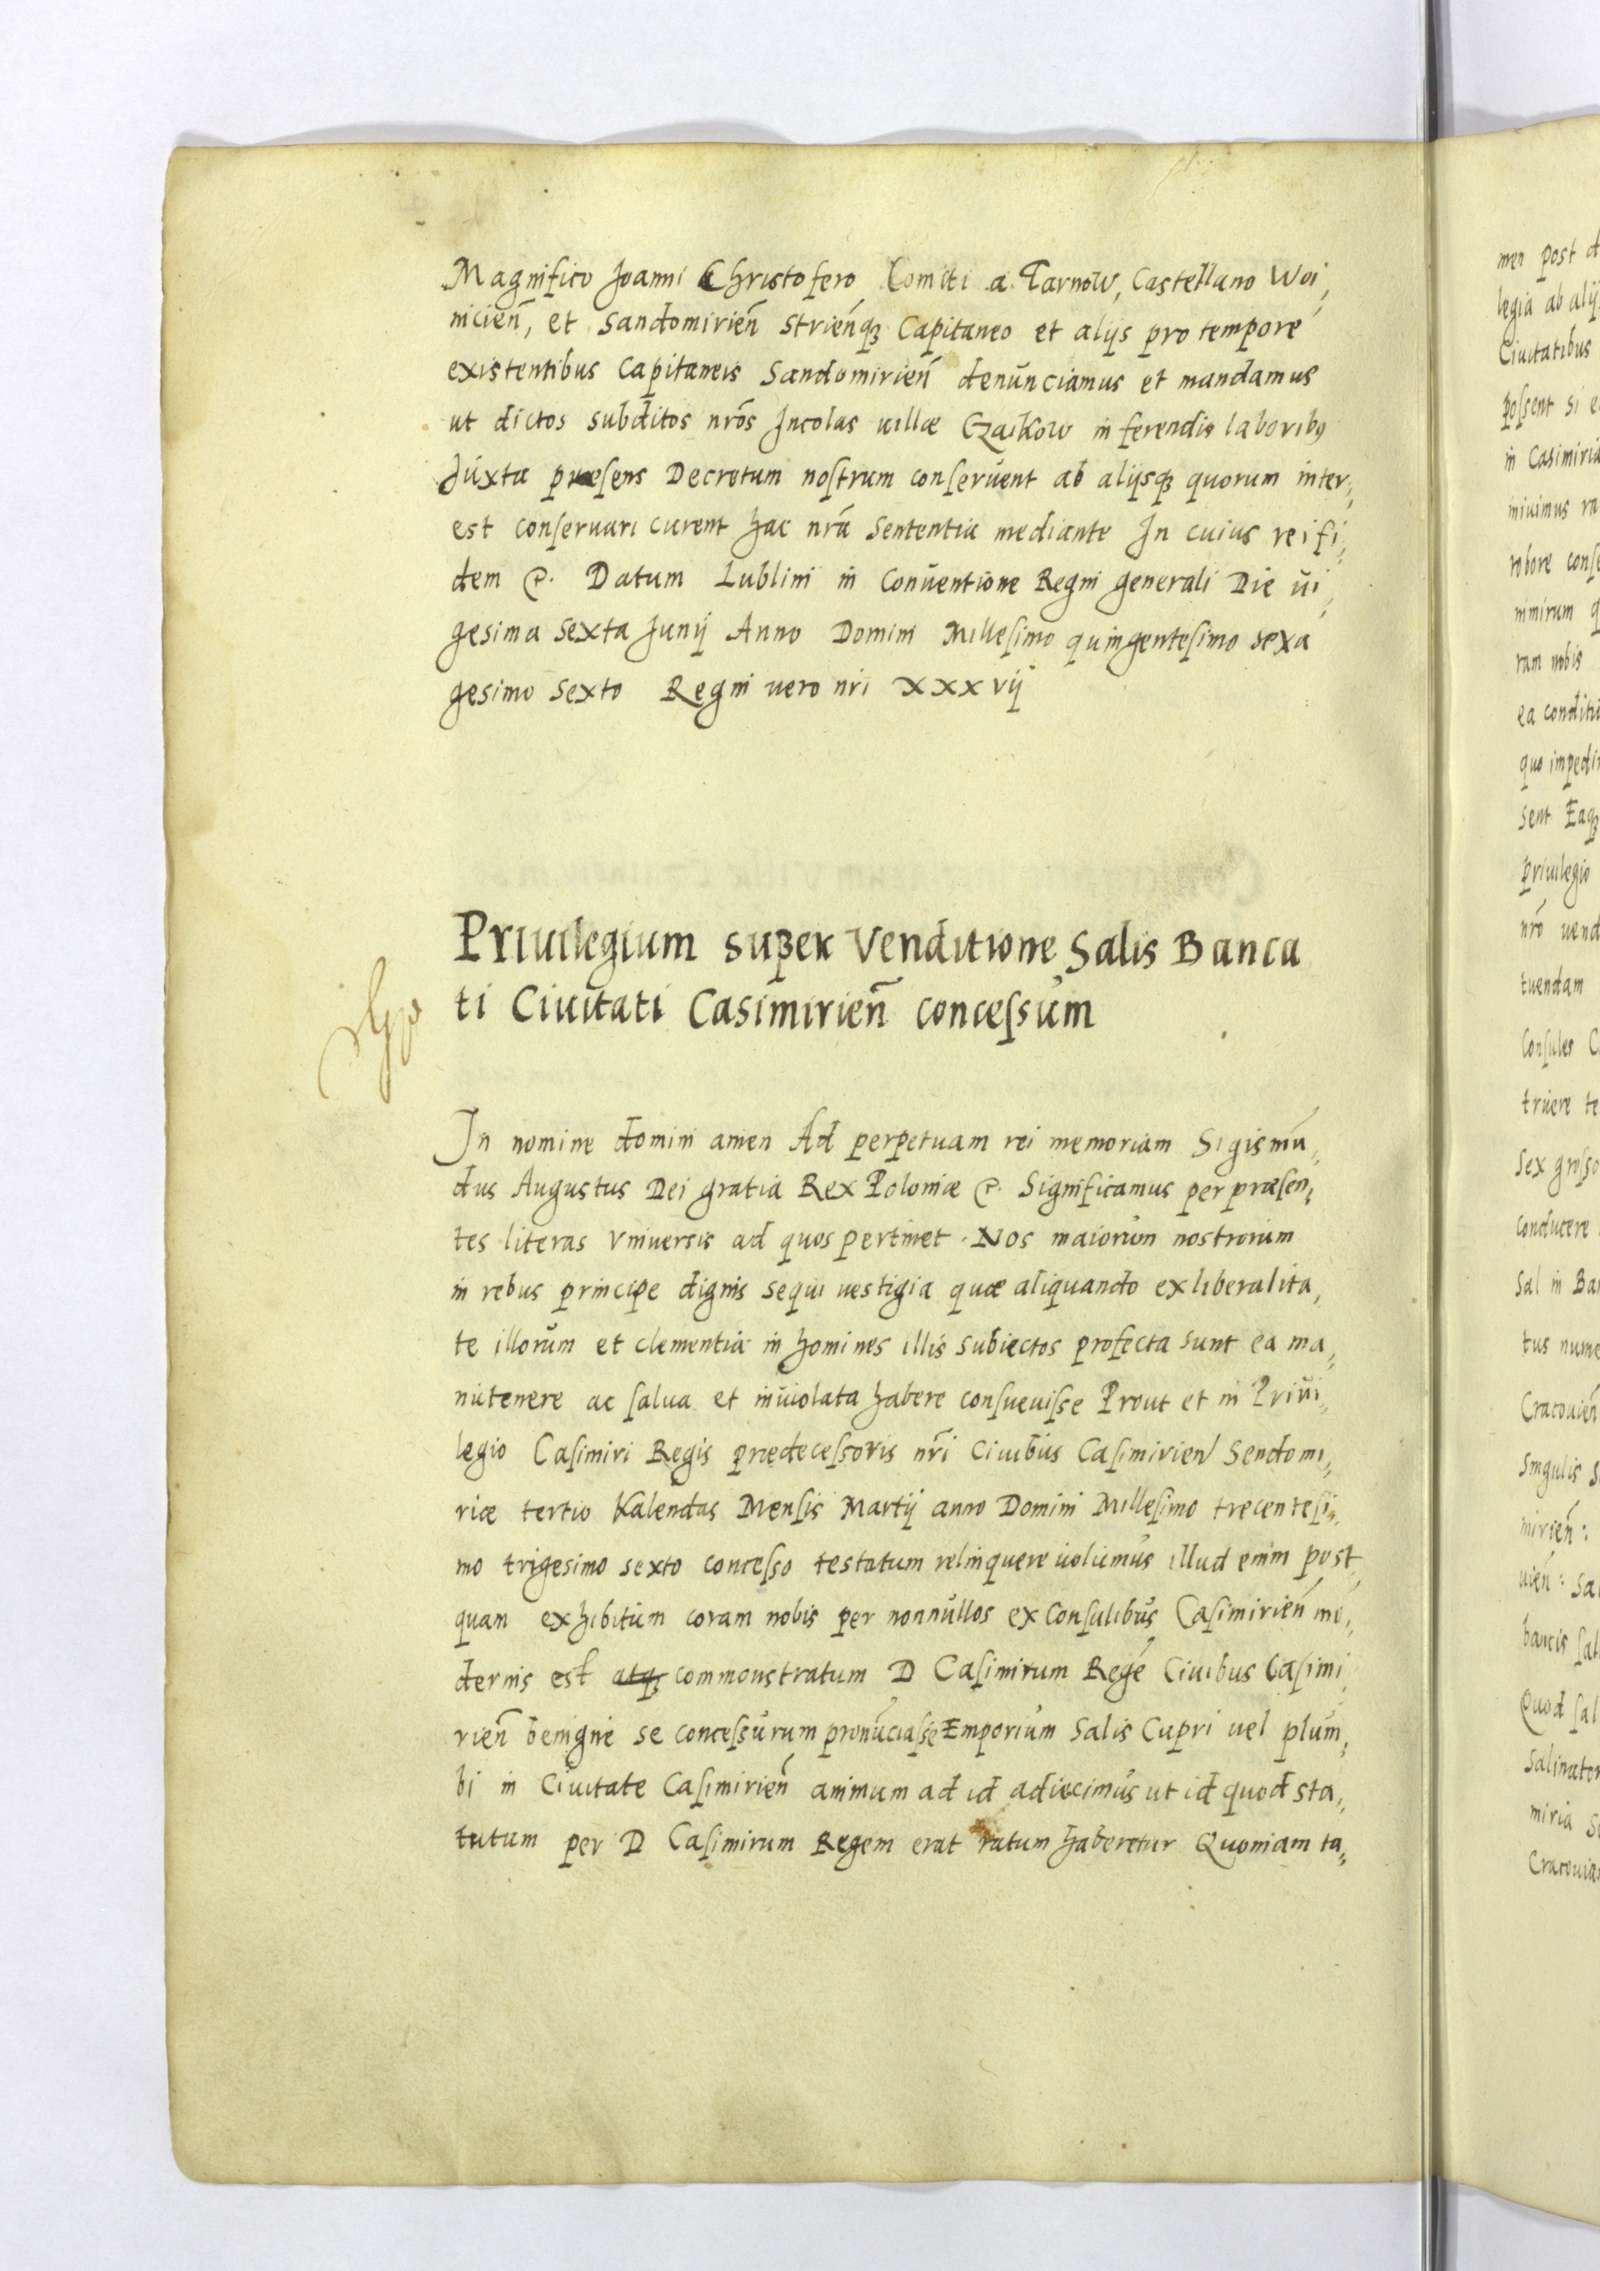 Magnifico Joanni Christofero Comiti a Tarnow, Castellano Woi,
niciēn, et Sandomiriēn Striēnqȝ Capitaneo et alijs pro tempore
existentibus Capitaneis Sandomiriēn denunciamus et mandamus
ut dictos subditos nrōs Incolas uillæ Czaikow in ferendis laboribȝ
Juxta præsens Decretum nostrum conseruent ab alijsqȝ quorum inter,,
est conseruari curent hac nrā Sententia mediante In cuius rei fi,,
dem &. Datum Lublini in Conuentione Regni generali Die ui,,
gesima Sexta Junij Anno Domini Millesimo quingentesimo sexa
gesimo Sexto Regni uero nri XXXvij
Priuilegium super Venditione Salis Banca
ti Ciuitati Casimiriēn concessum
In nomine domini amen Ad perpetuam rei memoriam Sigismū,,
dus Augustus Dei gratia Rex Poloniæ &. Significamus per præsen,,
tes literas Vniuersis ad quos pertinet. Nos maiorum nostrorum
in rebus principe dignis sequi uestigia quæ aliquando ex liberalita,
te illorum et clementia in homines illis subiectos profecta sunt ea ma,,
nutenere ac salua et inuiolata habere consueuisse Prout et in Priui,,
legio Casimiri Regis prædecessoris nrī Ciuibus Casimirien Sendomi,,
riæ tertio Kalendas Mensis Martij anno Domini Millesimo trecentesi,,
mo trigesimo sexto concesso testatum relinquere uolumus illud enim post
quam exhibitum coram nobis per nonnullos ex Consulibus Casimiriēn mo,,
dernis est atqȝ commonstratum D Casimirum Regē Ciuibus Casimi
riēn benigne se concessurum pronūciasse Emporium Salis Cupri uel plum,,
bi in Ciuitate Casimiriēn animum ad id adiecimus ut id quod sta,,
tutum per D Casimirum Regem erat ratum haberetur Quoniam ta,,
men post d
legia ab alij
Ciuitatibus
possent si e
in Casimiria
miuimus ra
robore cons
nimirum q
ram nobis
ea conditi
quo impedi
sent Eaqȝ
priuilegio
nrō uend
tuendam
Consules C
truere te
Sex grosso
conducere
Sal in Ban
tus nume
Cracouiēn
Singulis s
miriēn:
uiēn: Sa
bancis sal
Quod sal
Salinator
miria S
Cracouia